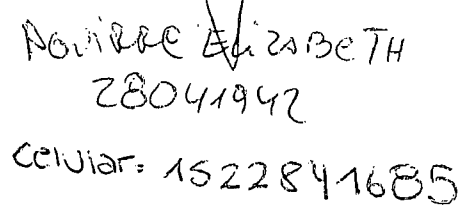 AGUIRRE ELIZABETH
28041942
celular: 1522841685